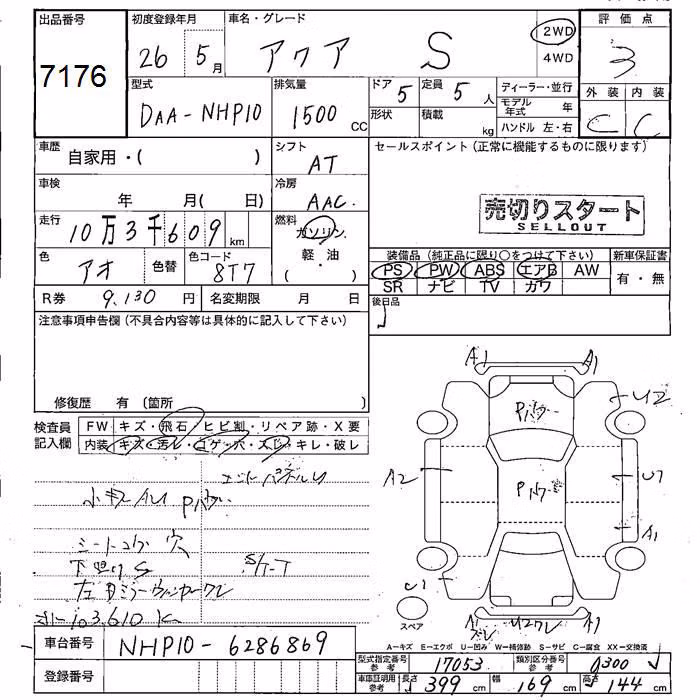 出品番号 7176
初度登録年月 26 5月
車名・グレード アクア S
2WD
4WD
評価点 3
外装 内装
C C
型式 DAA-NHP10
排気量 1500 CC
ドア 5
定員 5人
形状
積載 kg
ディーラー・並行
モデル年式 年
ハンドル 左・右
車歴 自家用・( )
シフト AT
セールスポイント(正常に機能するものに限ります)
車検 年 月( 日)
冷房 AAC
売切りスタート
SELLOUT
走行 10万3千609km
燃料 ガソリン・軽・油( )
色 アオ 色替
色コード 8T7
装備品(純正品に限り○をつけて下さい)
新車保証書
PS PW ABS エアB AW
有・無
SR ナビ TV カワ
R券 9,130円
名変期限 月 日
後日品
注意事項申告欄(不具合内容等は具体的に記入して下さい)
修復歴 有(箇所 )
検査員記入欄
FW キズ・飛石・ヒビ割・リペア跡・X要
内装 キズ・汚レ・コゲ・穴・スレ・キレ・破レ
A1 A1
U2
A2
U1
A1
U1
A1 U2ワレ A1
スペア
小キズAU
穴
S/T-T
103,610K
A=キズ E=エクボ U=凹み W=補修跡 S=サビ C=腐食 XX=交換済
車台番号 NHP10-6286869
登録番号
型式指定番号 参考 17053
類別区分番号 参考 0300
車庫証明用 参考 長さ 399cm 幅 169cm 高さ 144cm